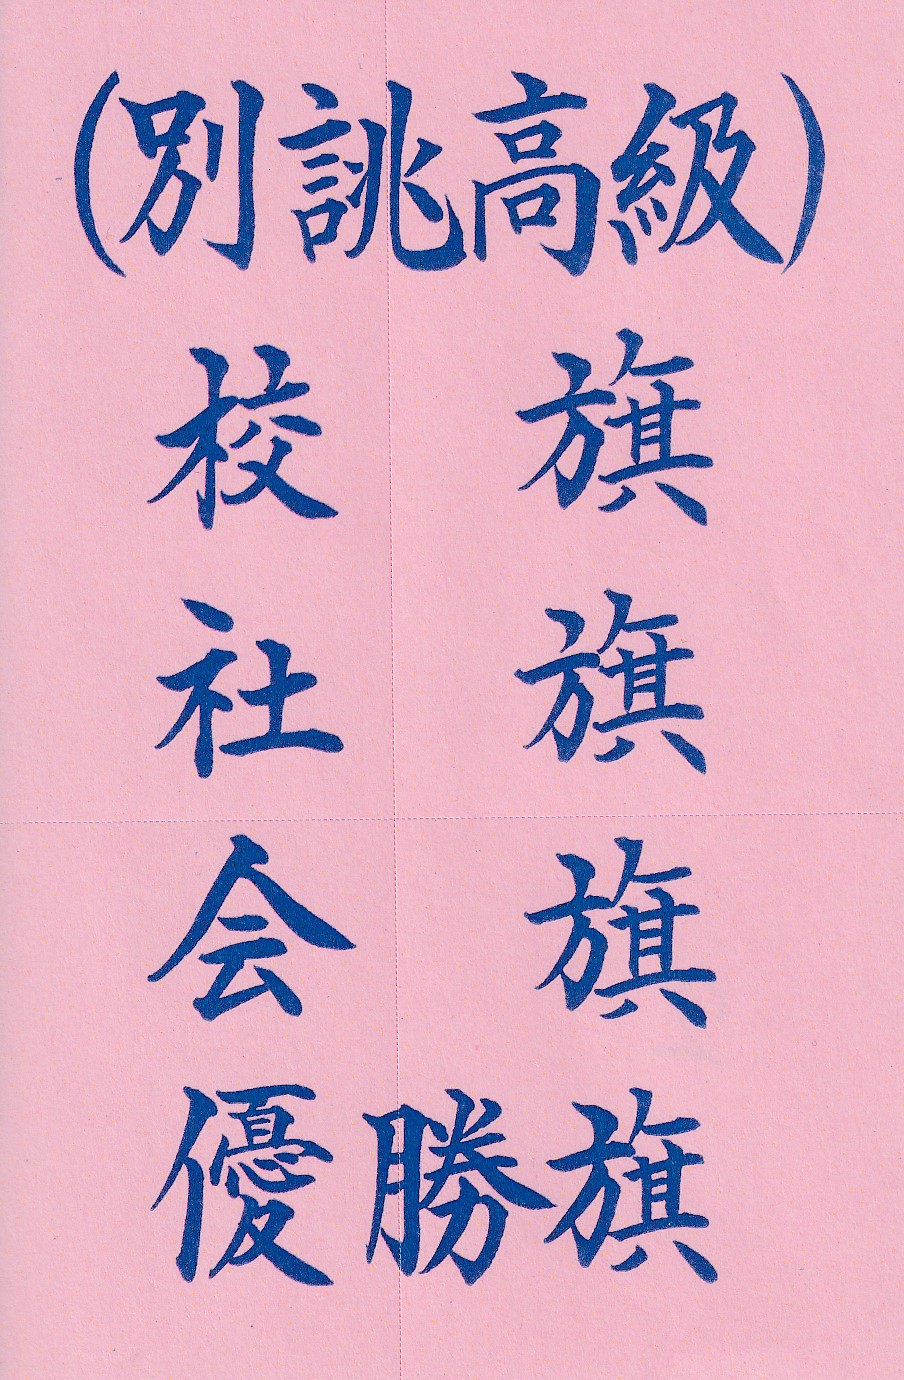 (別誂高級)
校旗
社旗
会旗
優勝旗